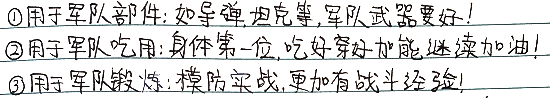 ①用于军队部件:如导弹,坦克等,军队武器要好!
②用于军队吃用:身体第一位,吃好穿好加能继续加油!
③用于军队锻炼:模防实战,更加有战斗经验!